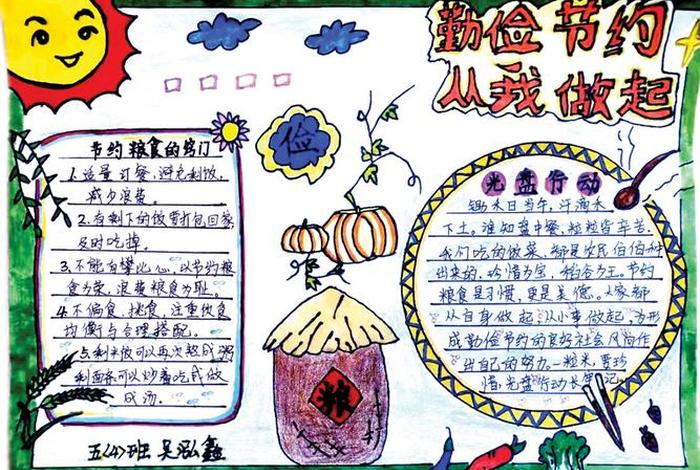 勤俭节约
从我做起
俭
节约粮食的窍门
1.适量订餐,避免剩饭,
减少浪费。
2.有剩下的饭要打包回家,
及时吃掉。
3.不能有攀比心,以节约粮
食为荣,浪费粮食为耻。
4.不偏食、挑食,注重饮食
均衡与合理搭配。
点剩米饭可以再次熬成粥,
剩面条可以炒着吃或做
成汤。
五(4)班 吴泓鑫
粮
光盘行动
锄禾日当午,汗滴禾
下土。谁知盘中餐,粒粒皆辛苦。
我们吃的饭菜,都是农民伯伯种
出来的,珍惜为宝,稻谷为王。节约
粮食是习惯,更是美德。大家都
从自身做起,从小事做起,为形
成勤俭节约的良好社会风尚作
出自己的努力。一粒米,要珍
惜,光盘行动长记。